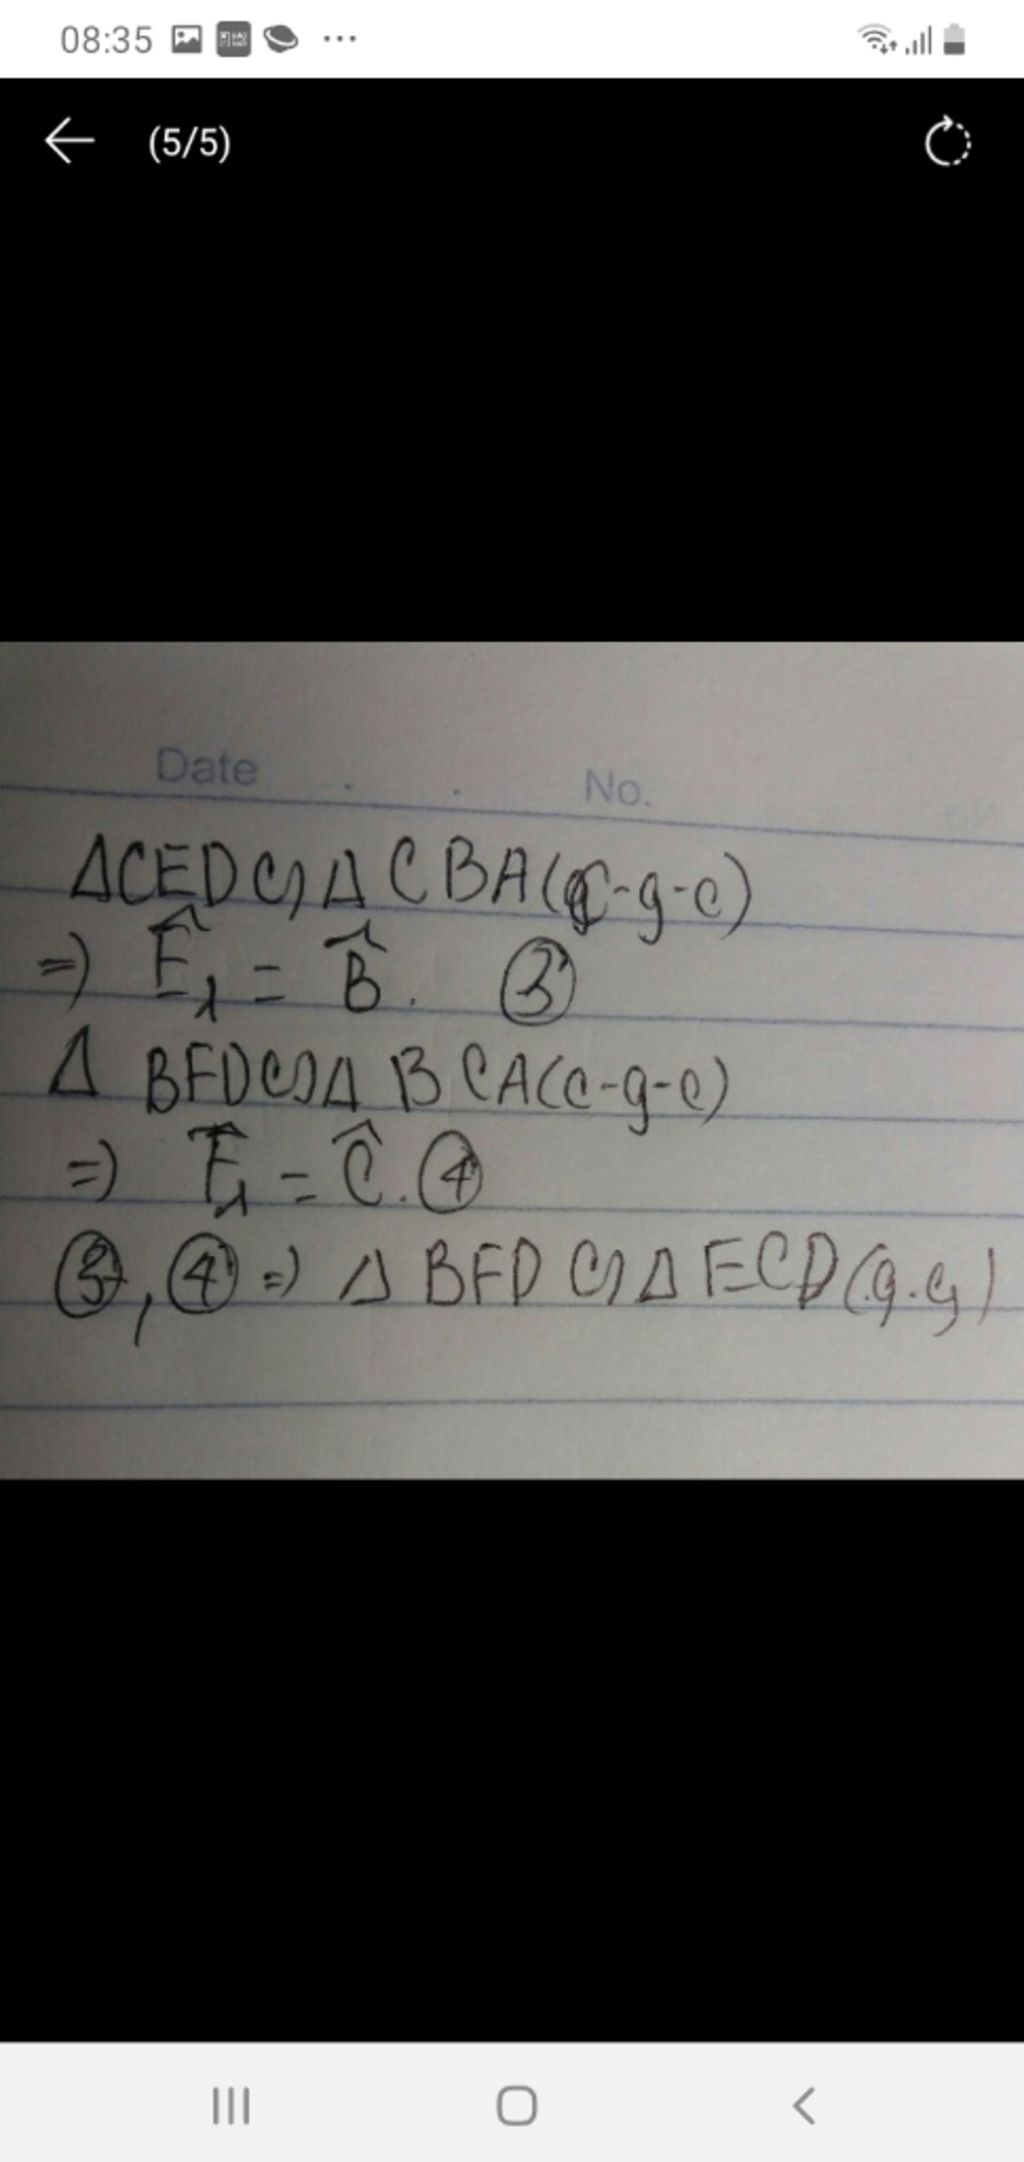 08:35
(5/5)
Date . . No.
ΔCED ∽ Δ CBA (c-g-c)
=) Ê₁ = B̂. ③
Δ BFD ∽ Δ BCA (c-g-c)
=) F̂₁ = Ĉ. ④
③, ④ =) Δ BFD ∽ Δ ECD (g.g)